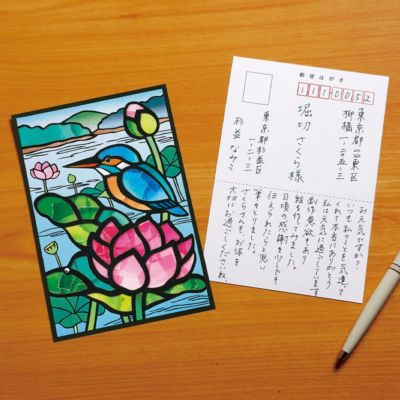 郵便はがき
1110052
東京都台東区
柳橋一-二五-三
堀切さくら様
東京都杉並区
杉並なみこ
お元気ですか？
いつも私のことを気遣って
くれて本当にありがとう
私は元気に過ごしています
創作意欲もあり
絵を作ってみました。
日頃の感謝を少しでも
伝えられたらと思い
筆をとりました。
さくらさんも、お体を
大切にお過ごしくださいね。